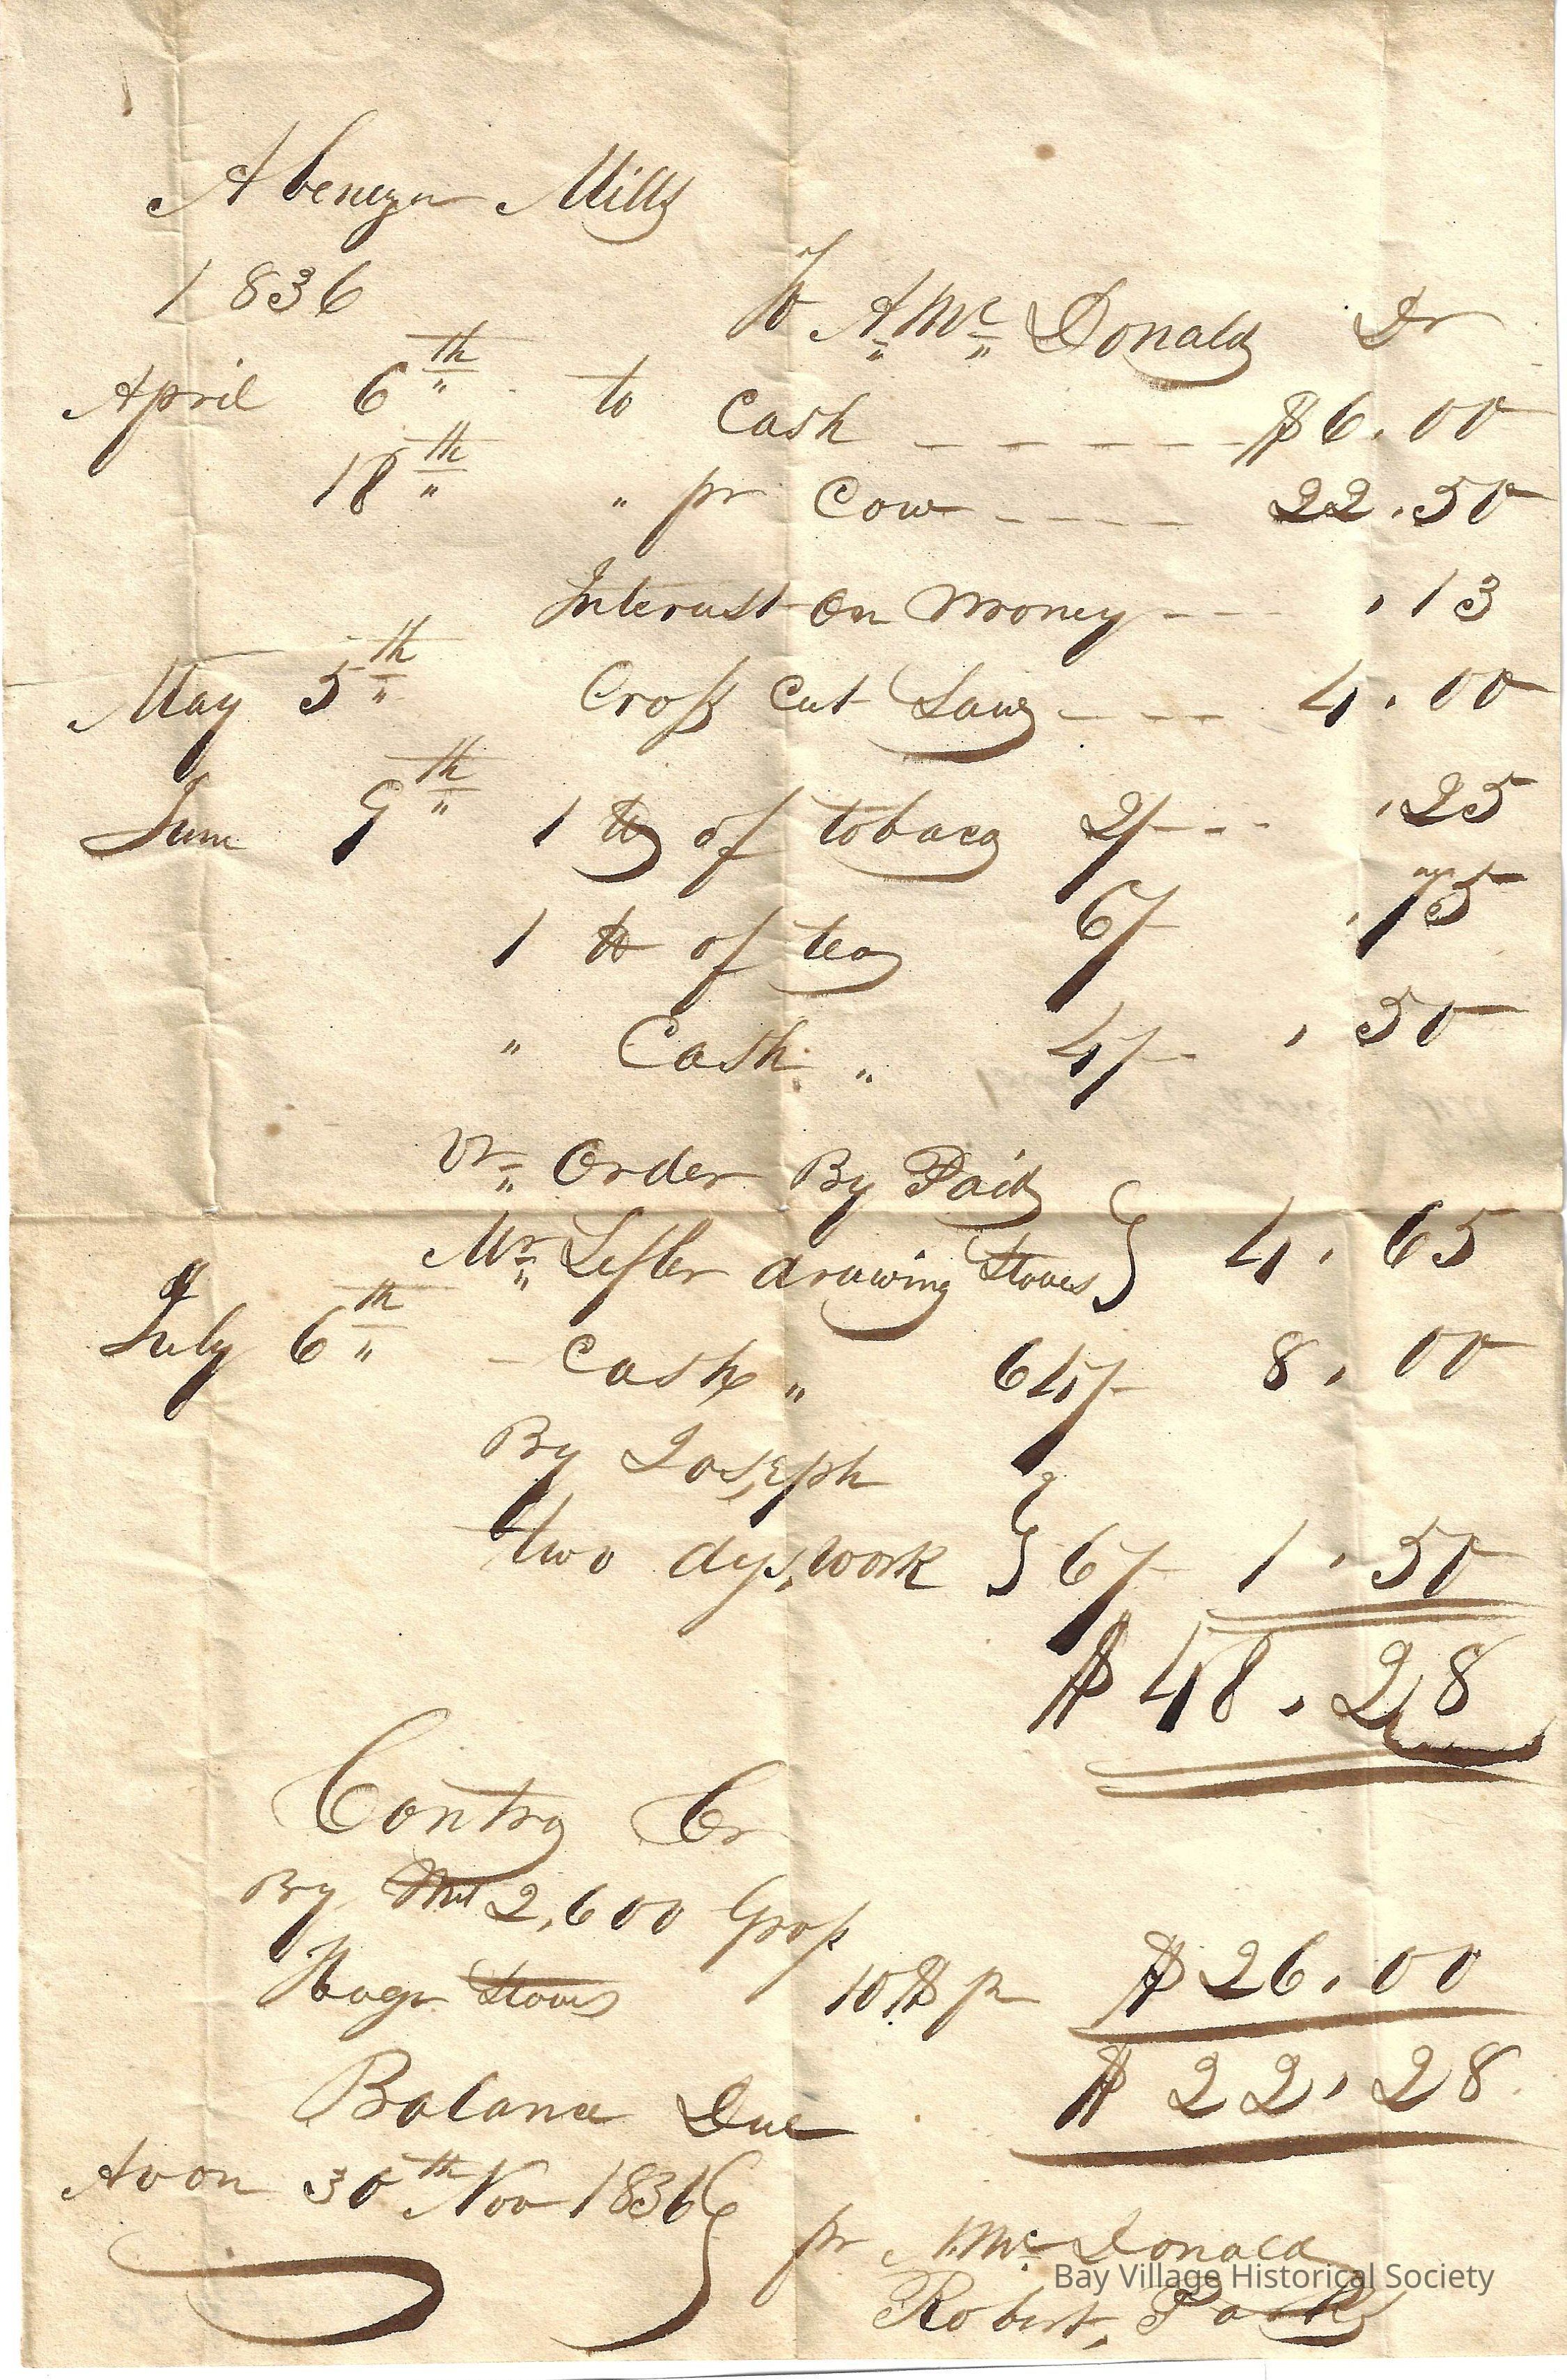 Abenezer Mills
1836
To A Mc Donald Dr
April 6th to Cash $6.00
18th " pr Cow 22.50
Interust on Money .13
May 5th Cross Cut Saw 4.00
June 9th 1 lb of tobaco 2/ .25
1 lb of tea 6/ .75
" Cash " 4/ .50
Order By Paid
Mr Lefler drawing Staves } 4.65
July 6th Cash " 64/ 8.00
By Joseph
two dys, work } 6/ 1.50
$48.28
Contra Cr
By 2,600 Gross
Hogr Staves 10$ pr $26.00
$22.28
Balance Due
Avon 30th Nov 1836
pr A. Mc Donald
Robert, Park
Bay Village Historical Society